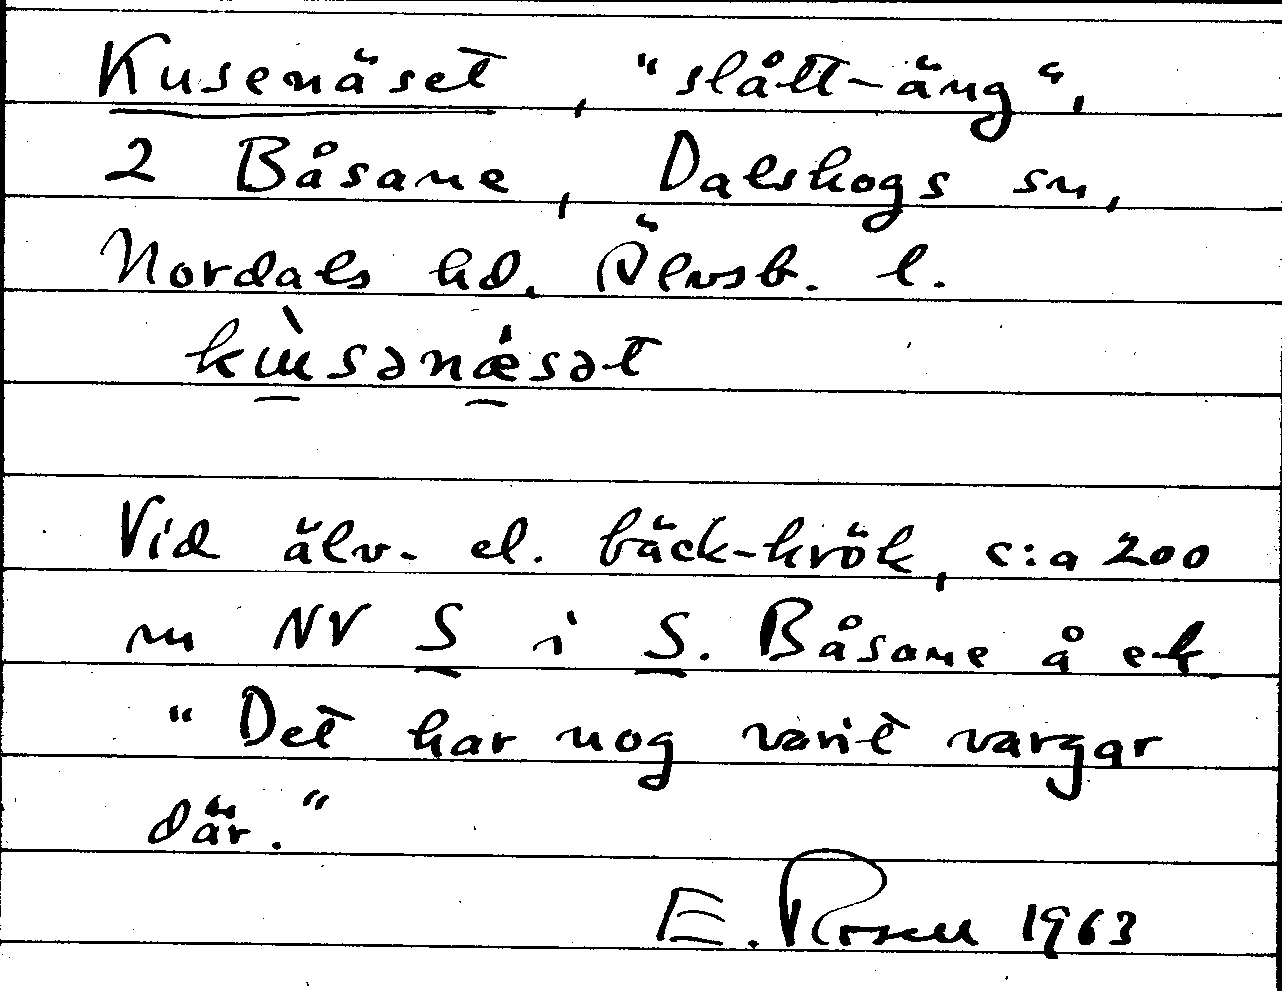 Kusenäset, "slått-äng",
2 Båsane, Dalskogs sn,
Nordals hd. Älvsb. l.
kɯ̀sənǽsət
Vid älv- el. bäck-krök, c:a 200
m NV S i S. Båsane å ek
"Det har nog varit vargar
där."
E. Rosell 1963